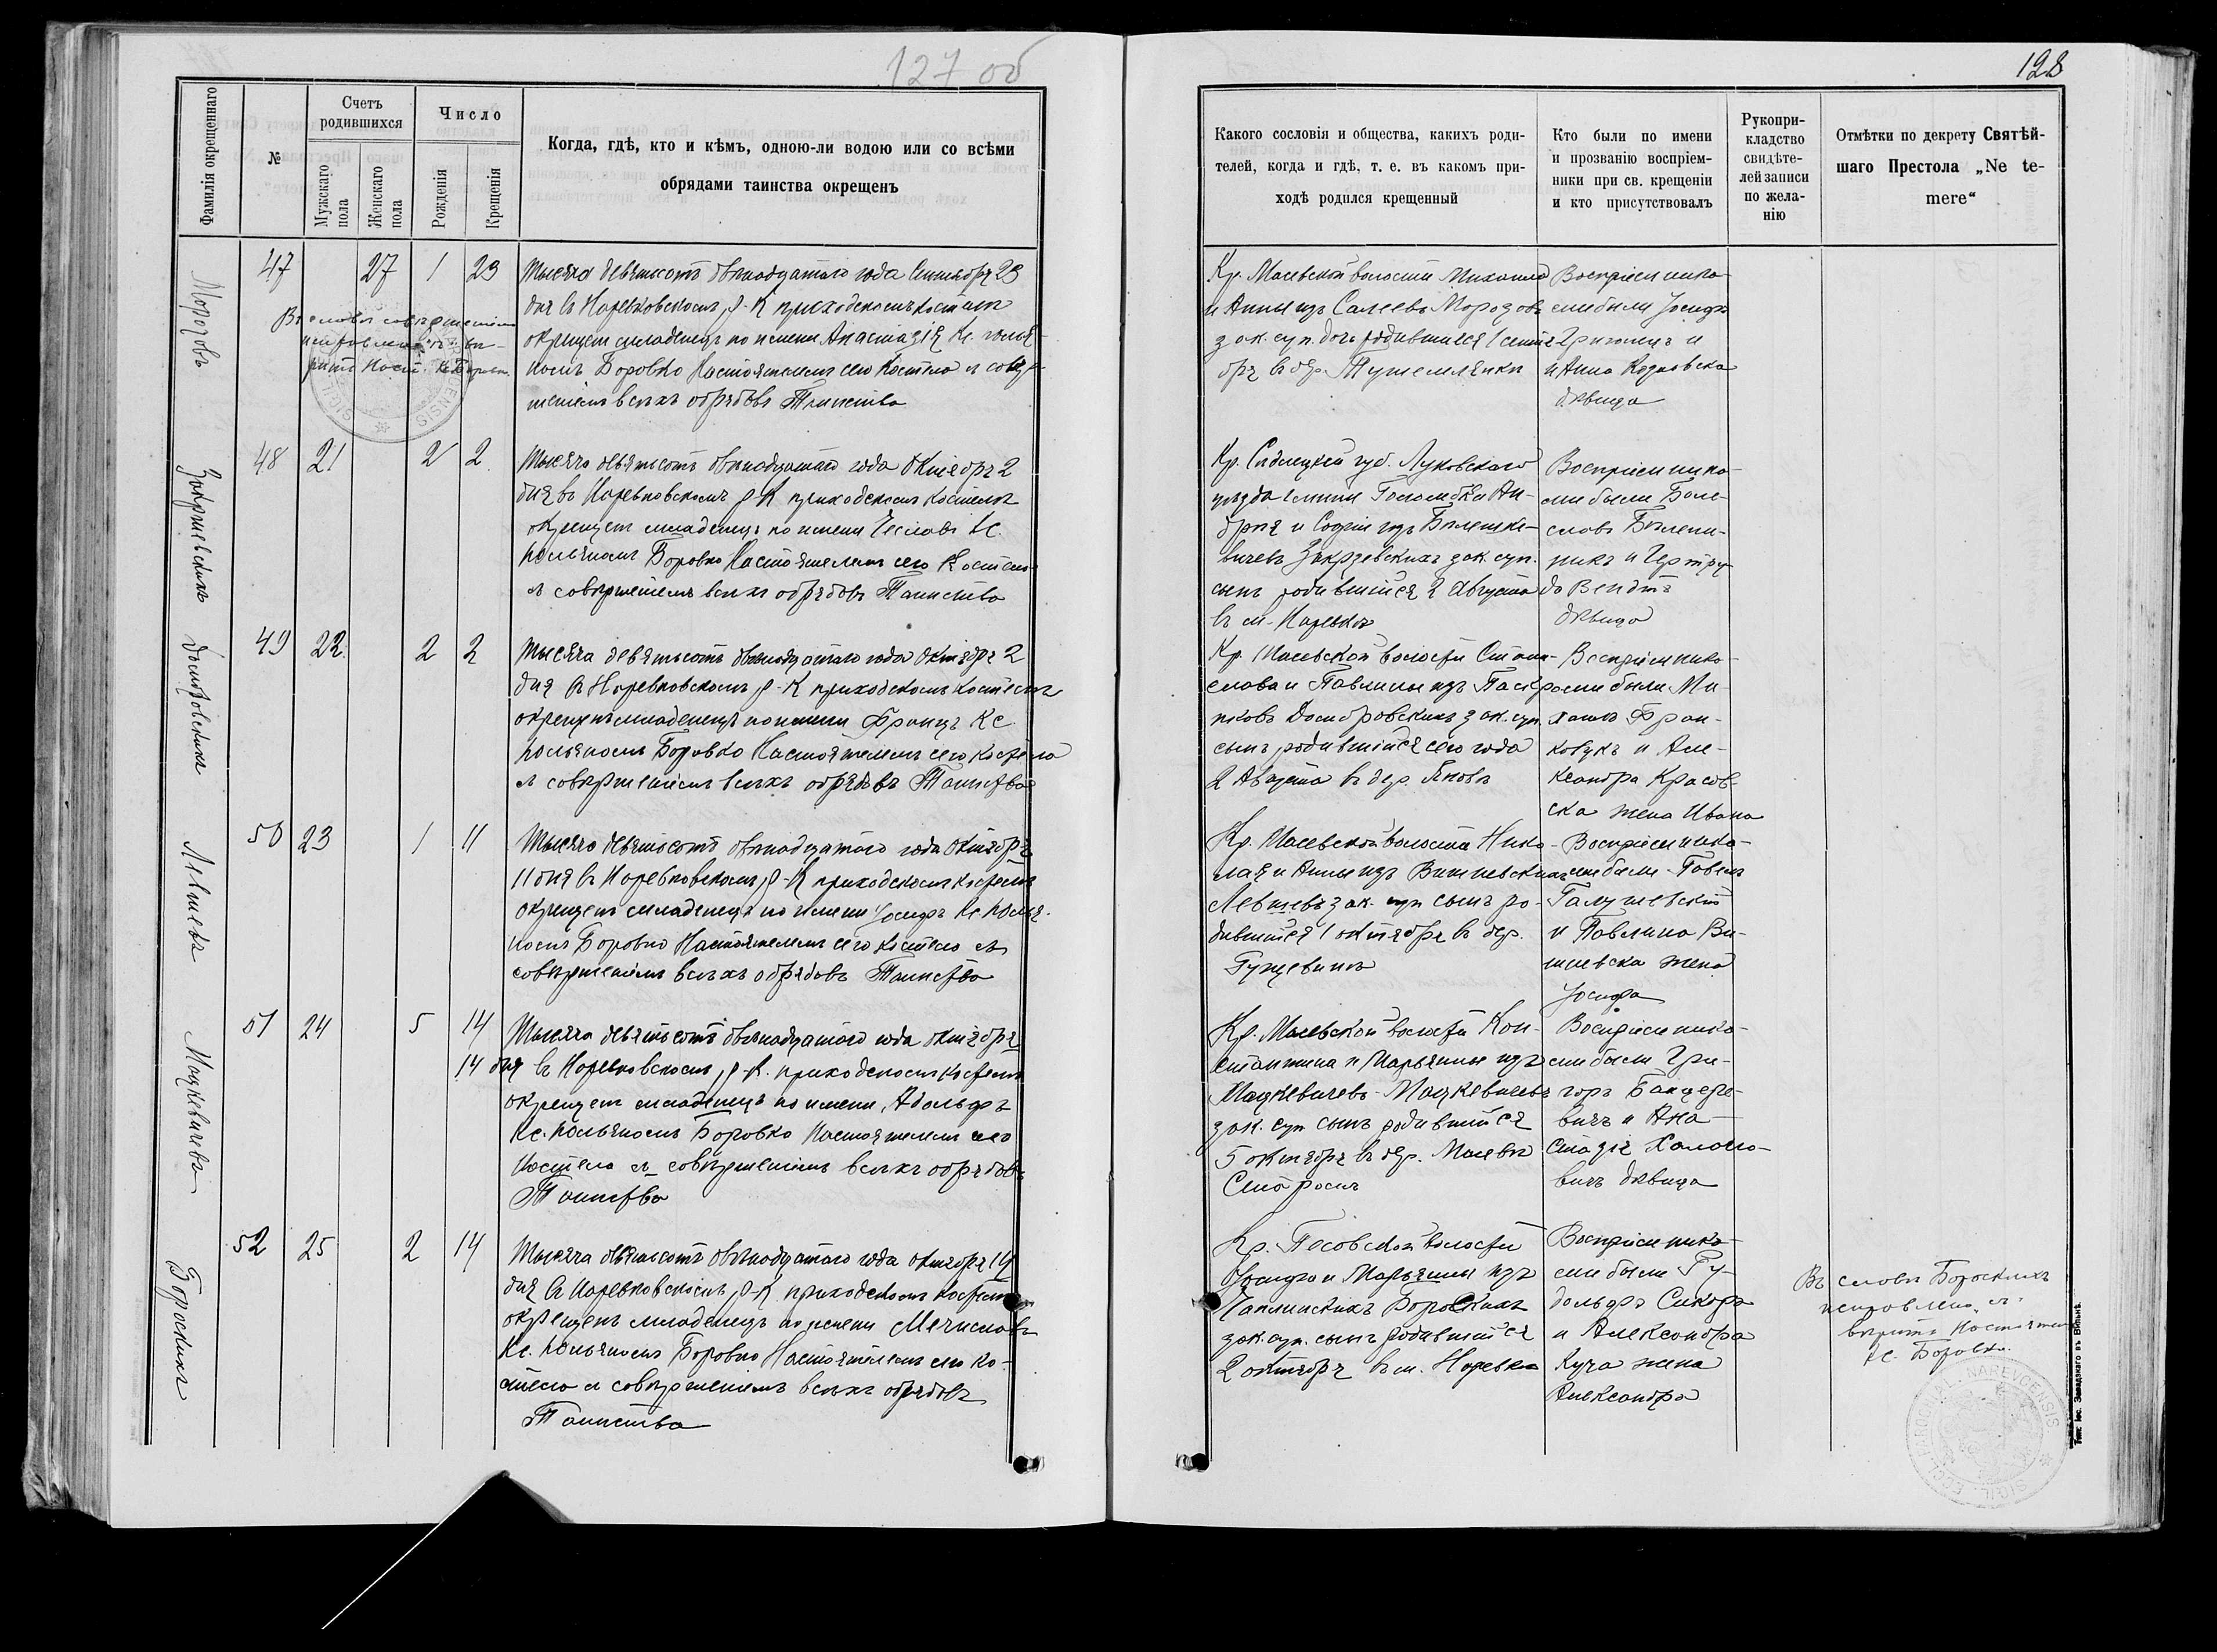 127 об
Фамилія окрещеннаго
№
Счетъ
родившихся
Мужскаго
пола
Женскаго
пола
Число
Рожденія
Крещенія
Когда, гдѣ, кто и кѣмъ, одною-ли водою или со всѣми
обрядами таинства окрещенъ
Морозовъ
47 27 1 23
Тысяча девятьсотъ двѣнадцатаго года Сентября 23
дня въ Наревковскомъ Р-К приходскомъ костелѣ
окрещен младенецъ по имени Анастазія Кс. Юлья-
номъ Боровко Настоятелемъ сего Костела съ совер-
шеніемъ всѣхъ обрядовъ Таинства
Въ словѣ совершеніемъ
исправлено вѣ-
рить Наст. Кс. Боровко
Закржевскихъ
48 21 2 2
Тысяча девятьсотъ двѣнадцатаго года Октября 2
дня въ Наревковскомъ Р-К приходскомъ костелѣ
окрещен младенецъ по имени Чеславъ Кс.
Юльяномъ Боровко Настоятелемъ сего Костела
съ совершеніемъ всѣхъ обрядовъ Таинства
Домбровскихъ
49 22 2 2
Тысяча девятьсотъ двѣнадцатаго года Октября 2
дня въ Наревковскомъ Р-К приходскомъ костелѣ
окрещенъ младенецъ по имени Францъ Кс.
Юльяномъ Боровко Настоятелемъ сего костела
съ совершеніемъ всѣхъ обрядовъ Таинства
Левшевъ
50 23 1 11
Тысяча девятьсотъ двѣнадцатаго года Октября
11 дня въ Наревковскомъ Р-К приходскомъ костелѣ
окрещенъ младенецъ по имени Іосифъ Кс Юлья-
номъ Боровко Настоятелемъ сего костела съ
совершеніемъ всѣхъ обрядовъ Таинства
Мацкевичевъ
51 24 5 14
Тысяча девятьсотъ двѣнадцатаго года октября
14 дня въ Наревковскомъ Р-К. приходскомъ костелѣ
окрещен младенецъ по имени Адольфъ
Кс. Юльяномъ Боровко Настоятелемъ сего
Костела съ совершеніемъ всѣхъ обрядовъ
Таинства
Бороскихъ
52 25 2 14
Тысяча девятьсотъ двѣнадцатаго года октября 14
дня въ Наревковскомъ Р-К приходскомъ костелѣ
окрещенъ младенецъ по имени Мечиславъ
Кс. Юльяномъ Боровко Настоятелемъ сего ко-
стела съ совершеніемъ всѣхъ обрядовъ
Таинства
128
Какого сословія и общества, какихъ роди-
телей, когда и гдѣ, т. е. въ какомъ при-
ходѣ родился крещенный
Кто были по имени
и прозванію воспріем-
ники при св. крещеніи
и кто присутствовалъ
Рукопри-
кладство
свидѣте-
лей записи
по жела-
нію
Отмѣтки по декрету Святѣй-
шаго Престола „Ne te-
mere“
Кр. Масевской волости Михаила
и Анны изъ Салеевъ Морозовъ
зак. суп. дочь родившаяся 1 сентя-
бря въ дер. Тушемлянки
Воспріемника-
ми были Іосифъ
и
и Анна Козловска
дѣвица
Кр. Сѣдлецкой губ. Луковскаго
уѣзда гмины Голомбки Ан-
дрея и Софіи изъ
Закрзевскихъ зак. суп.
сынъ родившійся 2 Августа
въ м. Наревкѣ
Воспріемника-
ми были Боле-
славъ
и Гертру-
да Вендтъ
дѣвица
Кр. Масевской волости Стани-
слава и Павлины изъ
Домбровскихъ зак. суп.
сынъ родившійся сего года
2 Августа въ дер. Яновѣ
Воспріемника-
ми были Ми-
хаилъ Фран-
ковукъ и Але-
ксандра Красов-
ска жена Ивана
Кр. Масевской волости Нико-
лая и Анны изъ Вишневскихъ
Левшевъ зак. суп сынъ ро-
дившійся 1 октября въ дер.
Гущевинѣ
Воспріемника-
ми были Павелъ
Галушевскій
и Павлина Ви-
шневска жена
Іосифа
Кр. Масевской волости Кон-
стантина и Марьянны изъ
Мацкевичевъ Мацкевичевъ
зак. суп сынъ родившійся
5 октября въ дер. Масевѣ
Старомъ
Воспріемника-
ми были Гри-
горъ Банцере-
вичъ и Ана-
стазія
вичъ дѣвица
Кр. Пасовской волости
Іосифа и Марьянны изъ
Чаплинскихъ Бороскихъ
зак. суп. сынъ родившійся
2 октября въ м. Наревкѣ
Воспріемника-
ми были Ру-
дольфъ Сикора
и Александра
Куча жена
Александра
Въ словѣ Бороскихъ
исправлено „с“
вѣрить Настоятель
Кс. Боровко
Тип. Іос. Завадзкаго въ Вильнѣ.